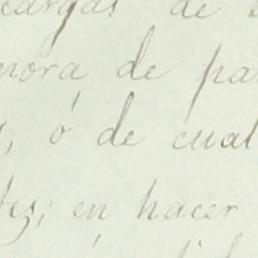 cargas de
mora de pa
s, ó de cual
tes; en hacer